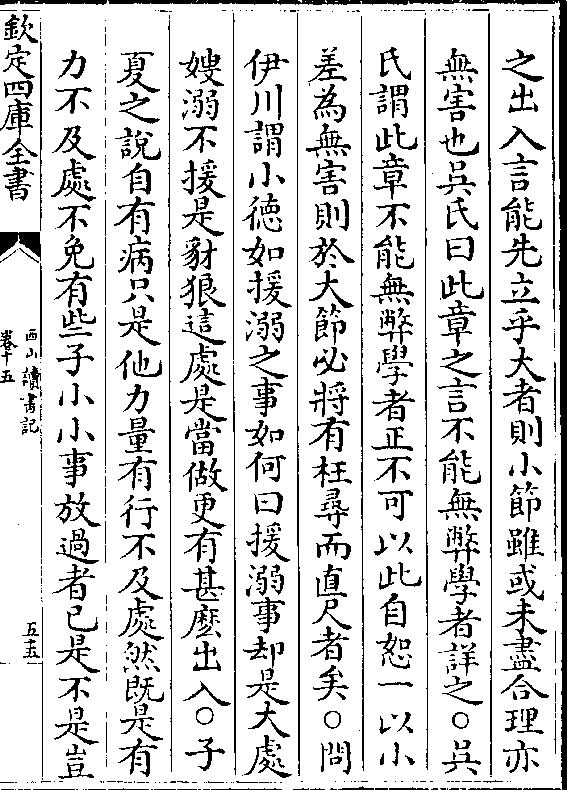 之出入言能先立乎大者則小節雖或未盡合理亦
無害也吳氏曰此章之言不能無弊學者詳之○吳
氏謂此章不能無弊學者正不可以此自恕一以小
差為無害則於大節必將有枉尋而直尺者矣○問
伊川謂小德如援溺之事如何曰援溺事却是大處
嫂溺不援是豺狼這處是當做更有甚麽出入○子
夏之說自有病只是他力量有行不及處然既是有
力不及處不免有些子小小事放過者已是不是豈
欽定四庫全書
西山讀書記
卷十五
五十五